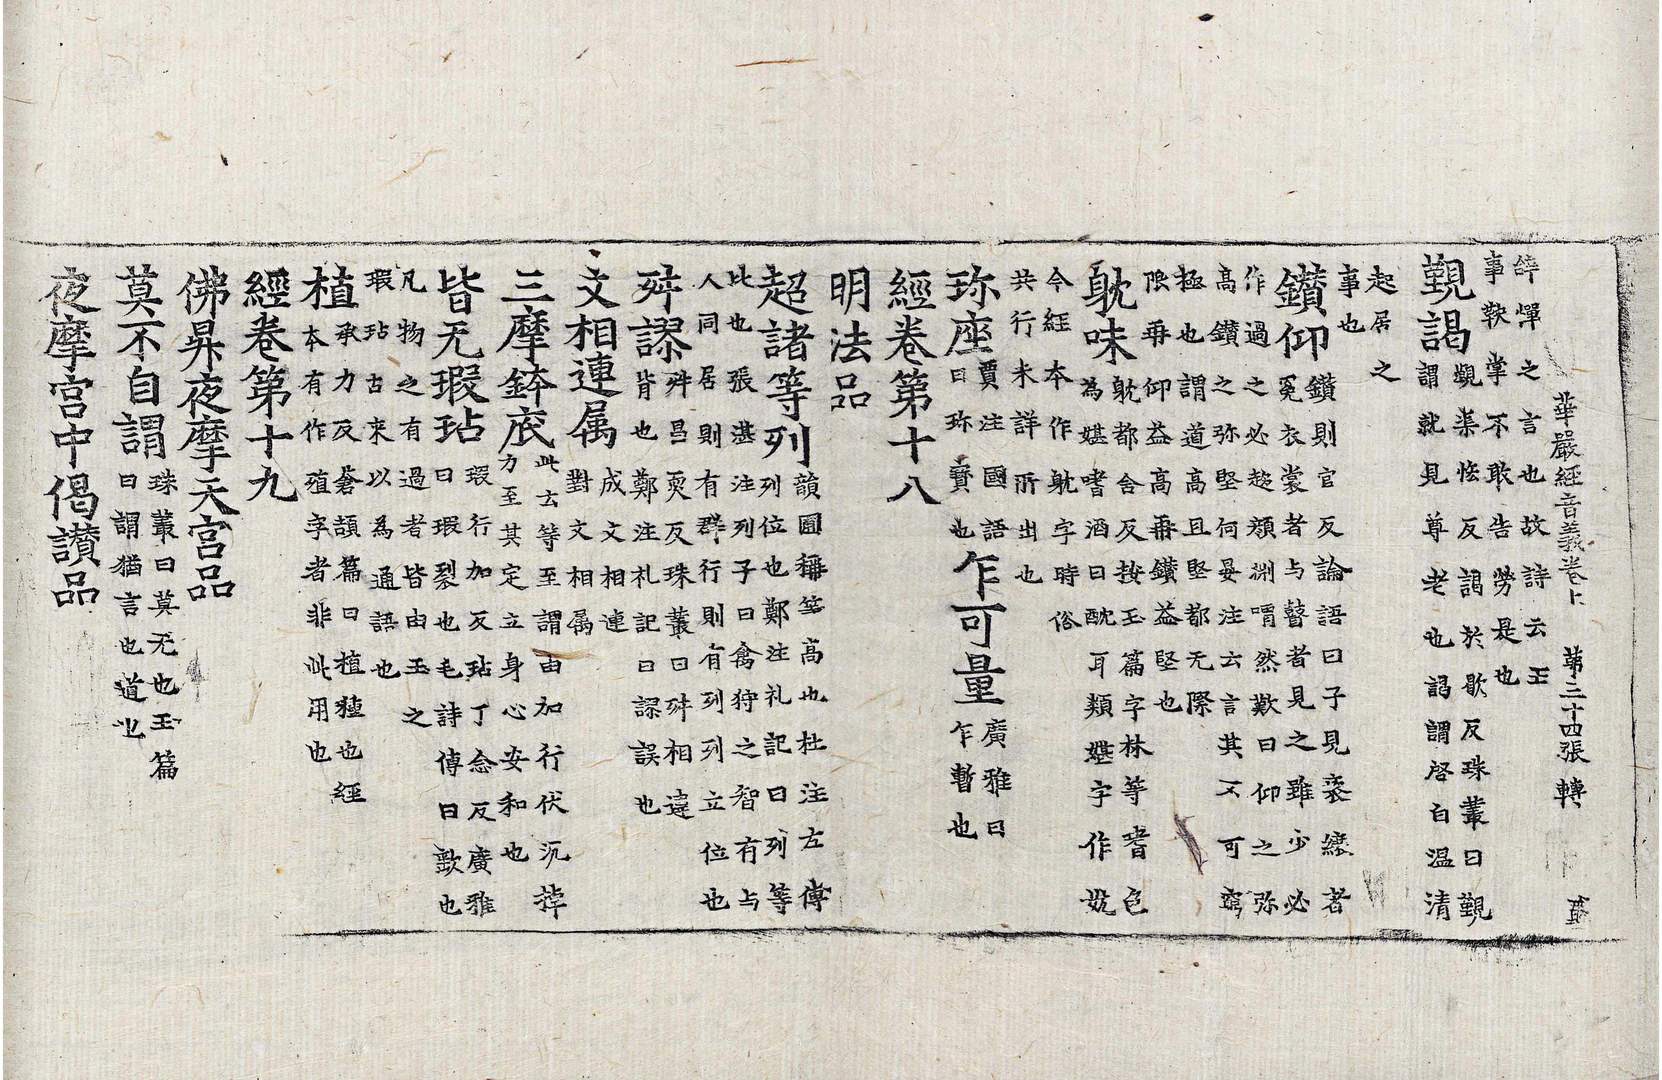 華嚴經音義卷上 第三十四張 轉
辝憚之言也故詩云王
事鞅掌不敢告勞是也
覲謁 覲渠恡反謁於歇反珠叢曰覲
謂就見尊老也謁謂啓白温清
起居之
事也
鑽仰 鑽鑽則官反論語曰子見衮縗者
冕衣裳者与瞽者見之雖少必
作過之必趍顔淵喟然歎曰仰之弥
高鑽之弥堅何晏注云言其不可窮
極也謂道高且堅都无際
限毋仰益高毋鑽益堅也
躭味 躭都含反按玉篇字林等嗜色
為媅嗜酒曰酖耳類媅字作躭
今經本作躭字時俗
共行未詳所出也
珎座 賈注國語
曰珎寳也 乍可量 廣雅曰
乍暫也
經卷第十八
明法品
超諸等列 韻圃稱等高也杜注左傳
列位也鄭注礼記曰列等
比也張湛注列子曰禽狩之智有与
人同居則有群行則有列列立位也
舛謬 舛昌耎反珠叢曰舛相違
背也鄭注礼記曰謬誤也
文相連属 成文相連
對文相属
三摩鉢底 此云等至謂由加行伏沉掉
力至其定立身心安和也
皆无瑕玷 瑕行加反玷丁念反廣雅
曰瑕裂也毛詩傳曰歠也
凡物之有過者皆由玉之
瑕玷古来以為通語也
植 承力反倉頡篇曰植種也經
本有作殖字者非此用也
經卷第十九
佛昇夜摩天宮品
莫不自謂 珠叢曰莫无也玉篇
曰謂猶言也道也
夜摩宮中偈讃品